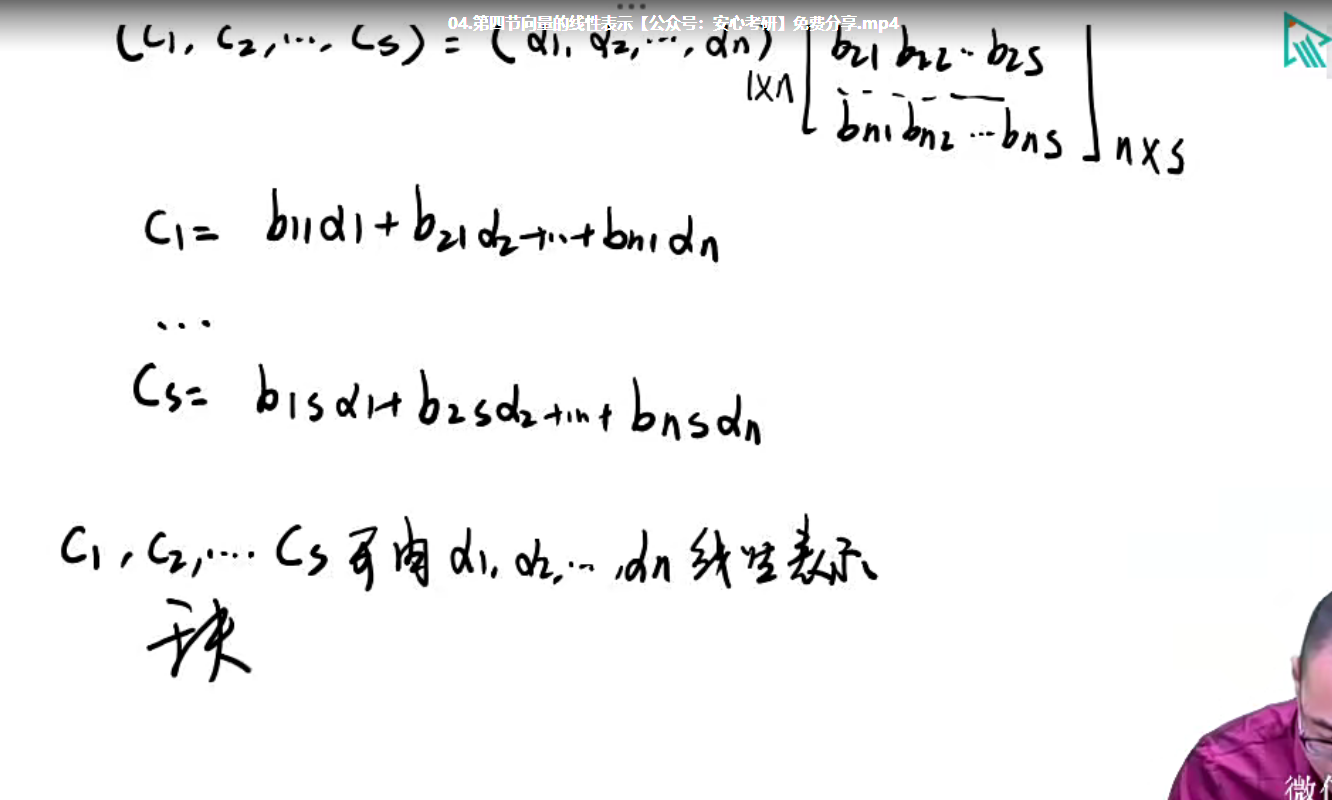 04.第四节向量的线性表示【公众号：安心考研】免费分享.mp4
(C1, C2, ..., Cs) = (α1, α2, ..., αn) 1×n [ b21 b22 ... b2s
bn1 bn2 ... bns ] n×s
C1 = b11α1 + b21α2 + ... + bn1αn
...
Cs = b1sα1 + b2sα2 + ... + bnsαn
C1, C2, ... Cs 可由 α1, α2, ..., αn 线性表示
微信